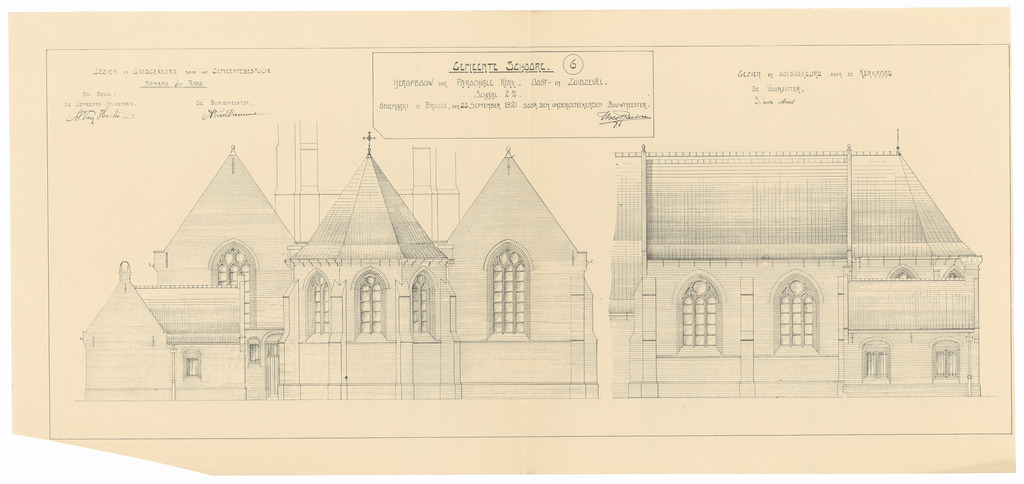 GEZIEN EN GOEDGEKEURD DOOR HET GEMEENTEBESTUUR
NAMENS DEN RAAD
BIJ BEVEL:
DE GEMEENTE SECRETARIS,
DE BURGEMEESTER,
GEMEENTE SCHOORE.
6
HEROPBOUW DER PAROCHIALE KERK. OOST- EN ZUIDGEVEL.
SCHAAL 2 %.
OPGEMAAKT TE BRUGGE, DEN 23 SEPTEMBER 1921 DOOR DEN ONDERGETEEKENDEN BOUWMEESTER.
GEZIEN EN GOEDGEKEURD DOOR DE KERKRAAD
DE VOORZITTER,